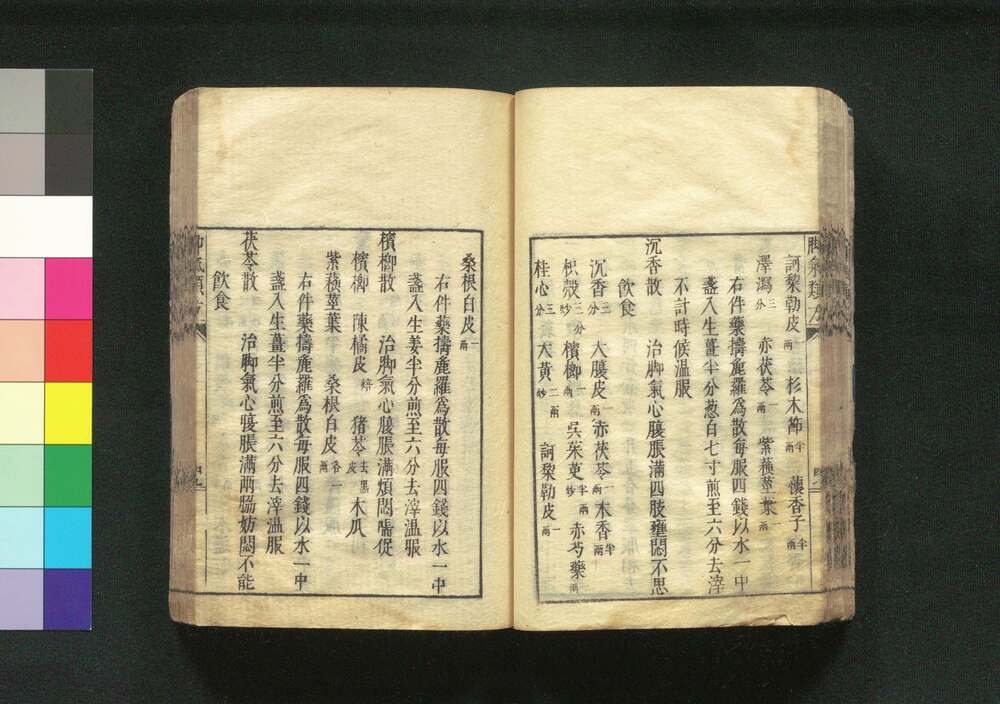 脚氣類方
訶棃勒皮一兩 杉木節半兩 蘹香子半兩
澤瀉三分 赤茯苓一兩 紫蘓莖葉一兩
右件藥擣麄羅為散每服四錢以水一中
盞入生薑半分葱白七寸煎至六分去滓
不計時候温服
沉香散 治脚氣心腹脹滿四肢壅悶不思
飲食
沉香三分 大腹皮一兩 赤茯苓一兩 木香半兩
枳殼三分炒 檳榔一兩 呉茱萸半兩炒 赤芍藥一兩
桂心三分 大黄二兩炒 訶棃勒皮一兩
桑根白皮一兩
右件藥擣麄羅為散每服四錢以水一中
盞入生姜半分煎至六分去滓温服
檳榔散 治脚氣心腹脹滿煩悶喘促
檳榔 陳橘皮焙 猪苓去黒皮 木瓜
紫蘓莖葉 桑根白皮各一兩
右件藥擣麄羅為散每服四錢以水一中
盞入生薑半分煎至六分去滓温服
茯苓散 治脚氣心寝脹滿兩脇妨悶不能
飲食